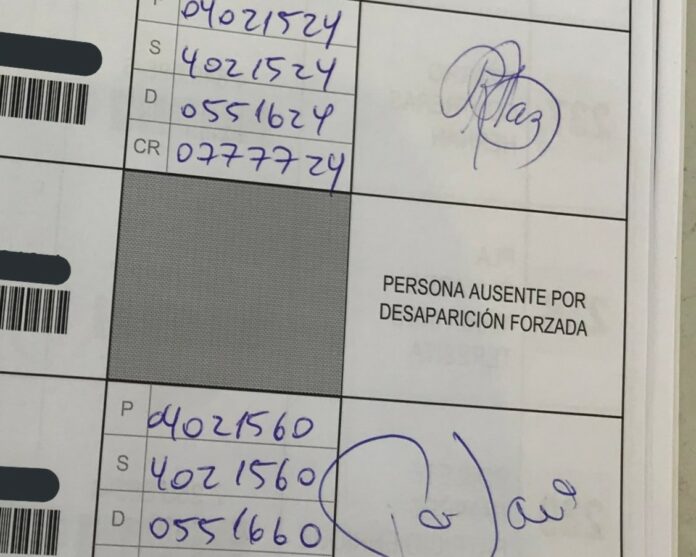 04021524
S 4021524
D 0551624
CR 0777724
PERSONA AUSENTE POR
DESAPARICIÓN FORZADA
P 04021560
S 4021560
D 0551660